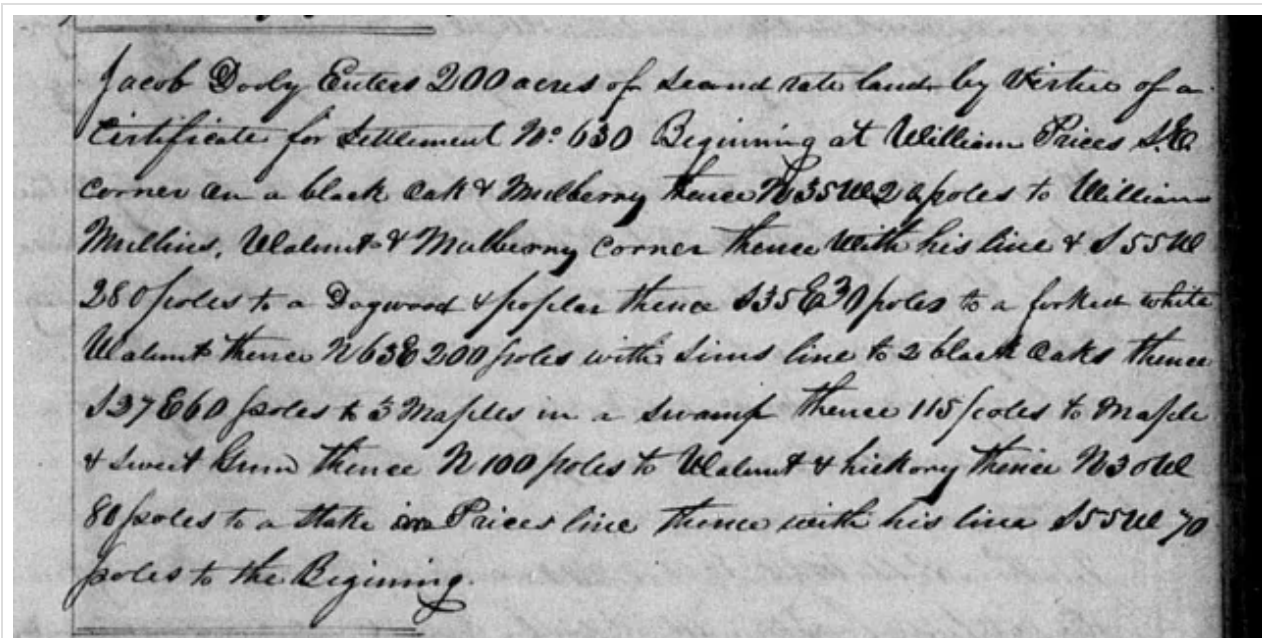 Jacob Dooly Enters 200 acres of second rate land by Virtue of a
Certificate for Settlement No. 630 Beginning at William Prices S.E.
corner on a black Oak & Mulberry thence N35W poles to William
Mullins, Walnut & Mulberry corner thence With his line & S55W
280 poles to a Dogwood & poplar thence S35E 30 poles to a forked white
Walnut thence N63E 200 poles with Sims line to 2 black Oaks thence
S27E60 poles to 3 Maples in a Swamp thence 115 poles to Maple
& Sweet Gum thence N 100 poles to Walnut & hickory thence N30W
80 poles to a Stake in Prices line thence with his line S55W 70
poles to the Begining.